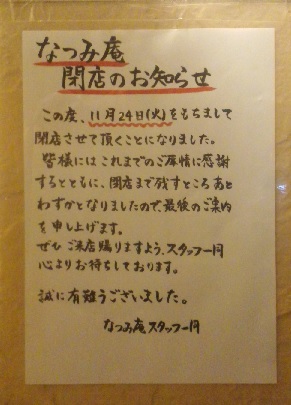 なつみ庵
閉店のお知らせ
この度、11月24日(火)をもちまして
閉店させて頂くことになりました。
皆様にはこれまでのご厚情に感謝
するとともに、閉店まで残すところあと
わずかとなりましたので、最後のご案内
を申し上げます。
ぜひご来店賜りますよう、スタッフ一同
心よりお待ちしております。
誠に有難うございました。
なつみ庵スタッフ一同